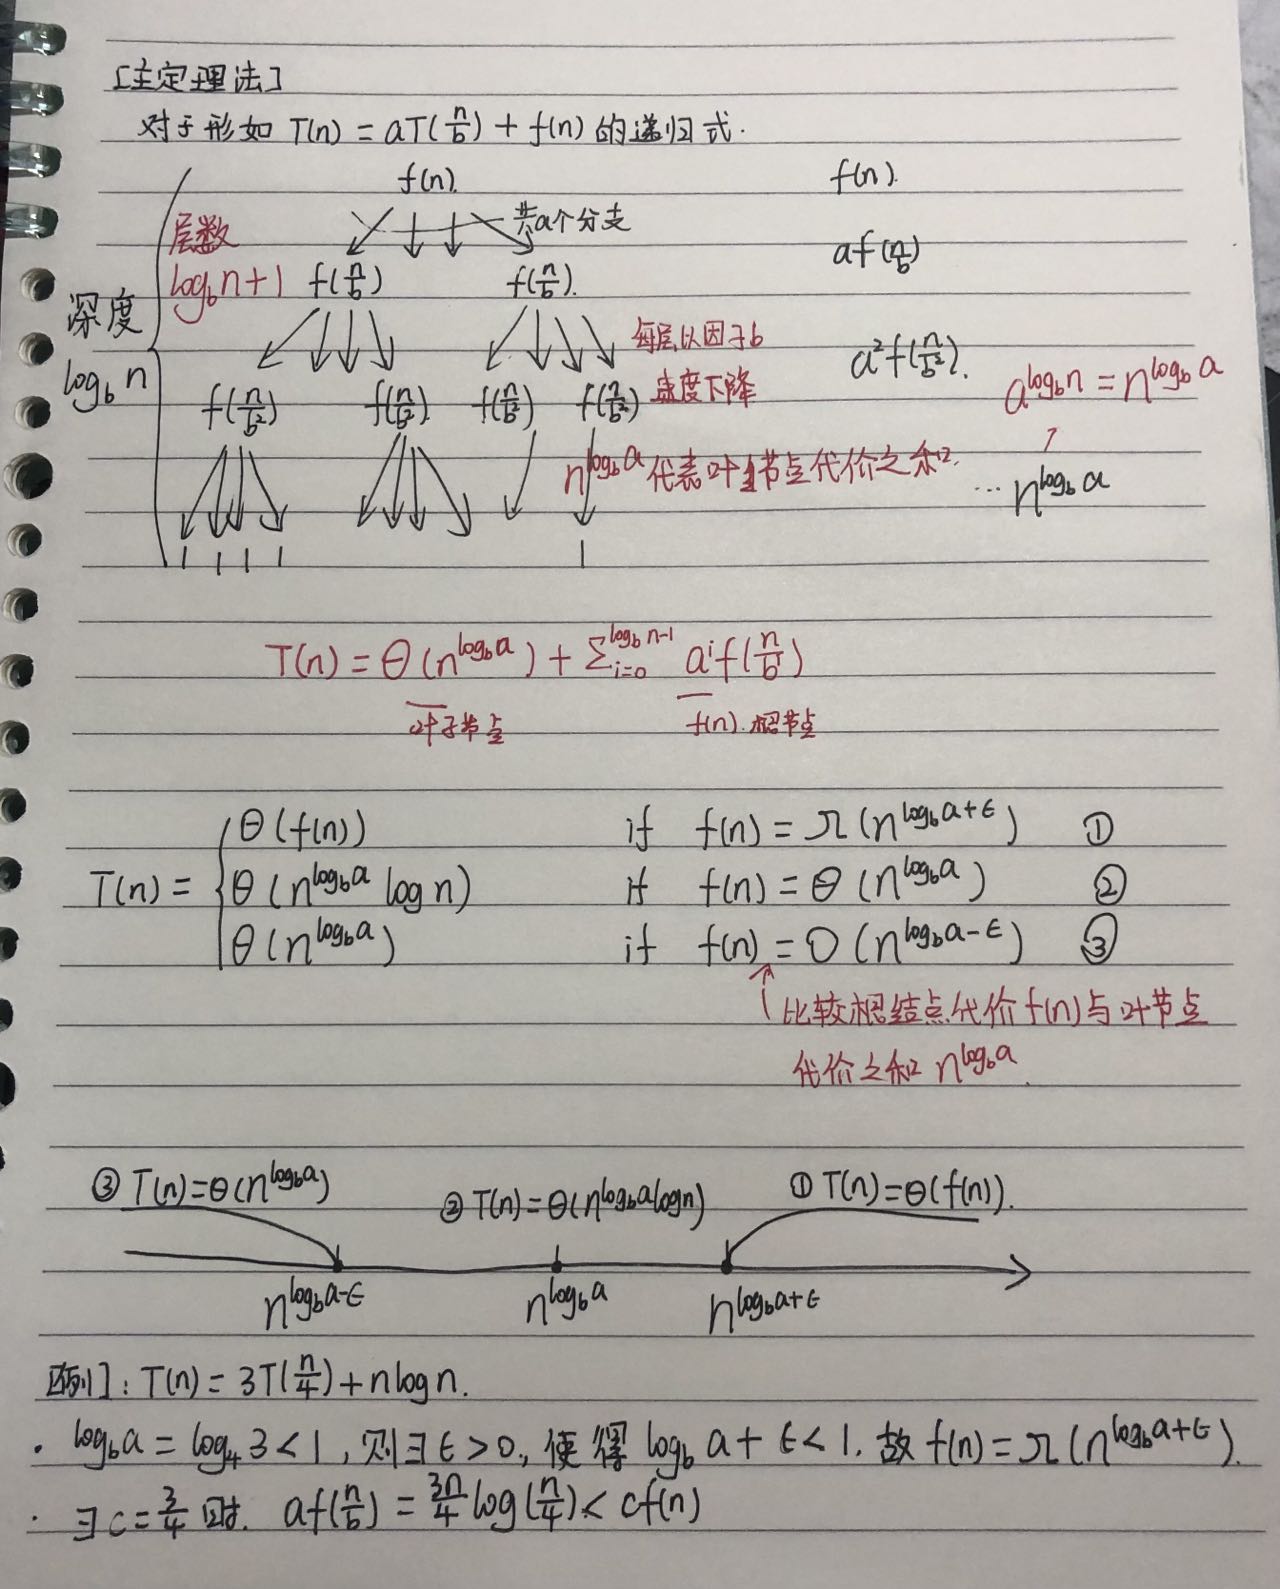 [主定理法]
对于形如 T(n) = aT(n/b) + f(n) 的递归式.
f(n). f(n).
共a个分支
层数 af(n/b)
log_b n+1 f(n/b) f(n/b).
深度 每层以因子b
log_b n a²f(n/b²).
f(n/b²) f(n/b²) f(n/b²) f(n/b²) 速度下降 a^{log_b n} = n^{log_b a}
n^{log_b a} 代表叶节点代价之和. ... n^{log_b a}
1 1 1 1 1
T(n) = Θ(n^{log_b a}) + Σ_{i=0}^{log_b n-1} a^i f(n/b^i)
叶子节点 f(n).根节点
T(n) = { Θ(f(n)) if f(n) = Ω(n^{log_b a+ε}) ①
Θ(n^{log_b a} log n) if f(n) = Θ(n^{log_b a}) ②
Θ(n^{log_b a}) if f(n) = O(n^{log_b a-ε}) ③
↑比较根结点代价f(n)与叶节点
代价之和 n^{log_b a}.
③ T(n)=Θ(n^{log_b a}) ② T(n)=Θ(n^{log_b a}logn) ① T(n)=Θ(f(n)).
n^{log_b a-ε} n^{log_b a} n^{log_b a+ε}
[例]: T(n) = 3T(n/4) + nlogn.
· log_b a = log_4 3 < 1, 则∃ε>0, 使得 log_b a + ε < 1. 故 f(n) = Ω(n^{log_b a+ε}).
· ∃c = 3/4 时. af(n/b) = 3n/4 log(n/4) < cf(n)